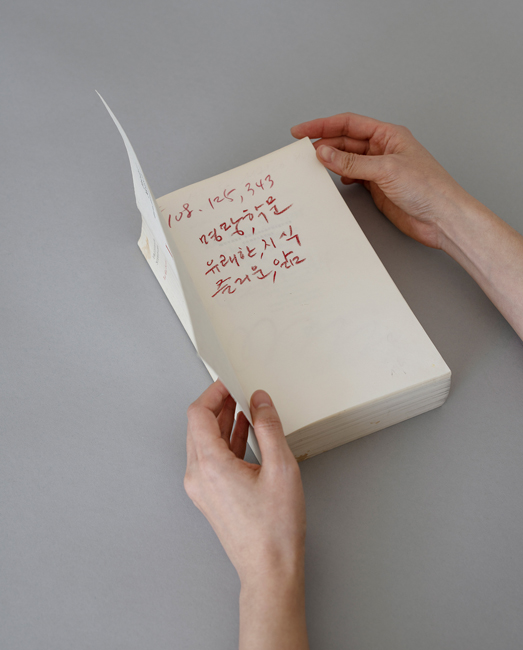 108. 125, 343
명랑, 학문
유래한, 지식
즐거운, 앎